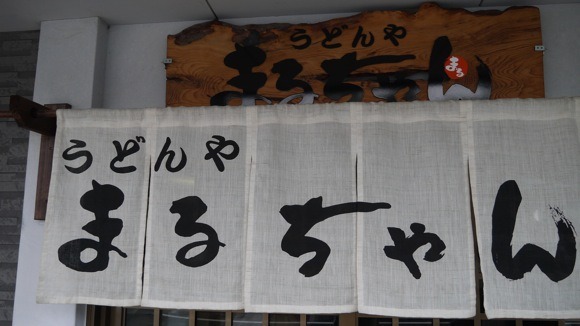 うどんや
まるちゃん
まる
うどんや
まるちゃん